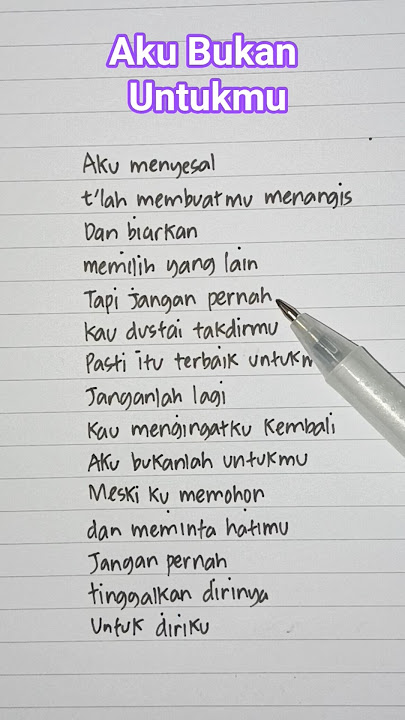 Aku Bukan
Untukmu
Aku menyesal
t'lah membuatmu menangis
Dan biarkan
memilih yang lain
Tapi jangan pernah
Kau dustai takdirmu
Pasti itu terbaik untukm
Janganlah lagi
Kau mengingatku kembali
Aku bukanlah untukmu
Meski ku memohon
dan meminta hatimu
Jangan pernah
tinggalkan dirinya
Untuk diriku